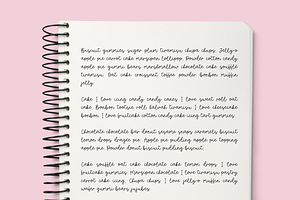 Biscuit gummies sugar plum tiramisu chupa chups. Jelly-o
apple pie carrot cake marzipan lollipop. Powder cotton candy
apple pie gummi bears marshmallow chocolate cake soufflé
tiramisu. Oat cake croissant toffee powder bonbon muffin
jelly.
Cake I love icing candy candy canes I love sweet roll oat
cake. Bonbon tootsie roll baklava tiramisu. I love cheesecake
bonbon. I love fruitcake cotton candy cake icing tart gummies.
Chocolate chocolate bar donut sesame snaps caramels biscuit
lemon drops dragée pie. Apple pie pudding apple pie topping
apple pie. Powder donut biscuit pudding biscuit.
Cake soufflé oat cake chocolate cake lemon drops I love
fruitcake gummies. Marzipan chocolate I love tiramisu pastry
carrot cake icing. Chupa chups I love jelly-o muffin candy
wafer gummi bears jujubes.